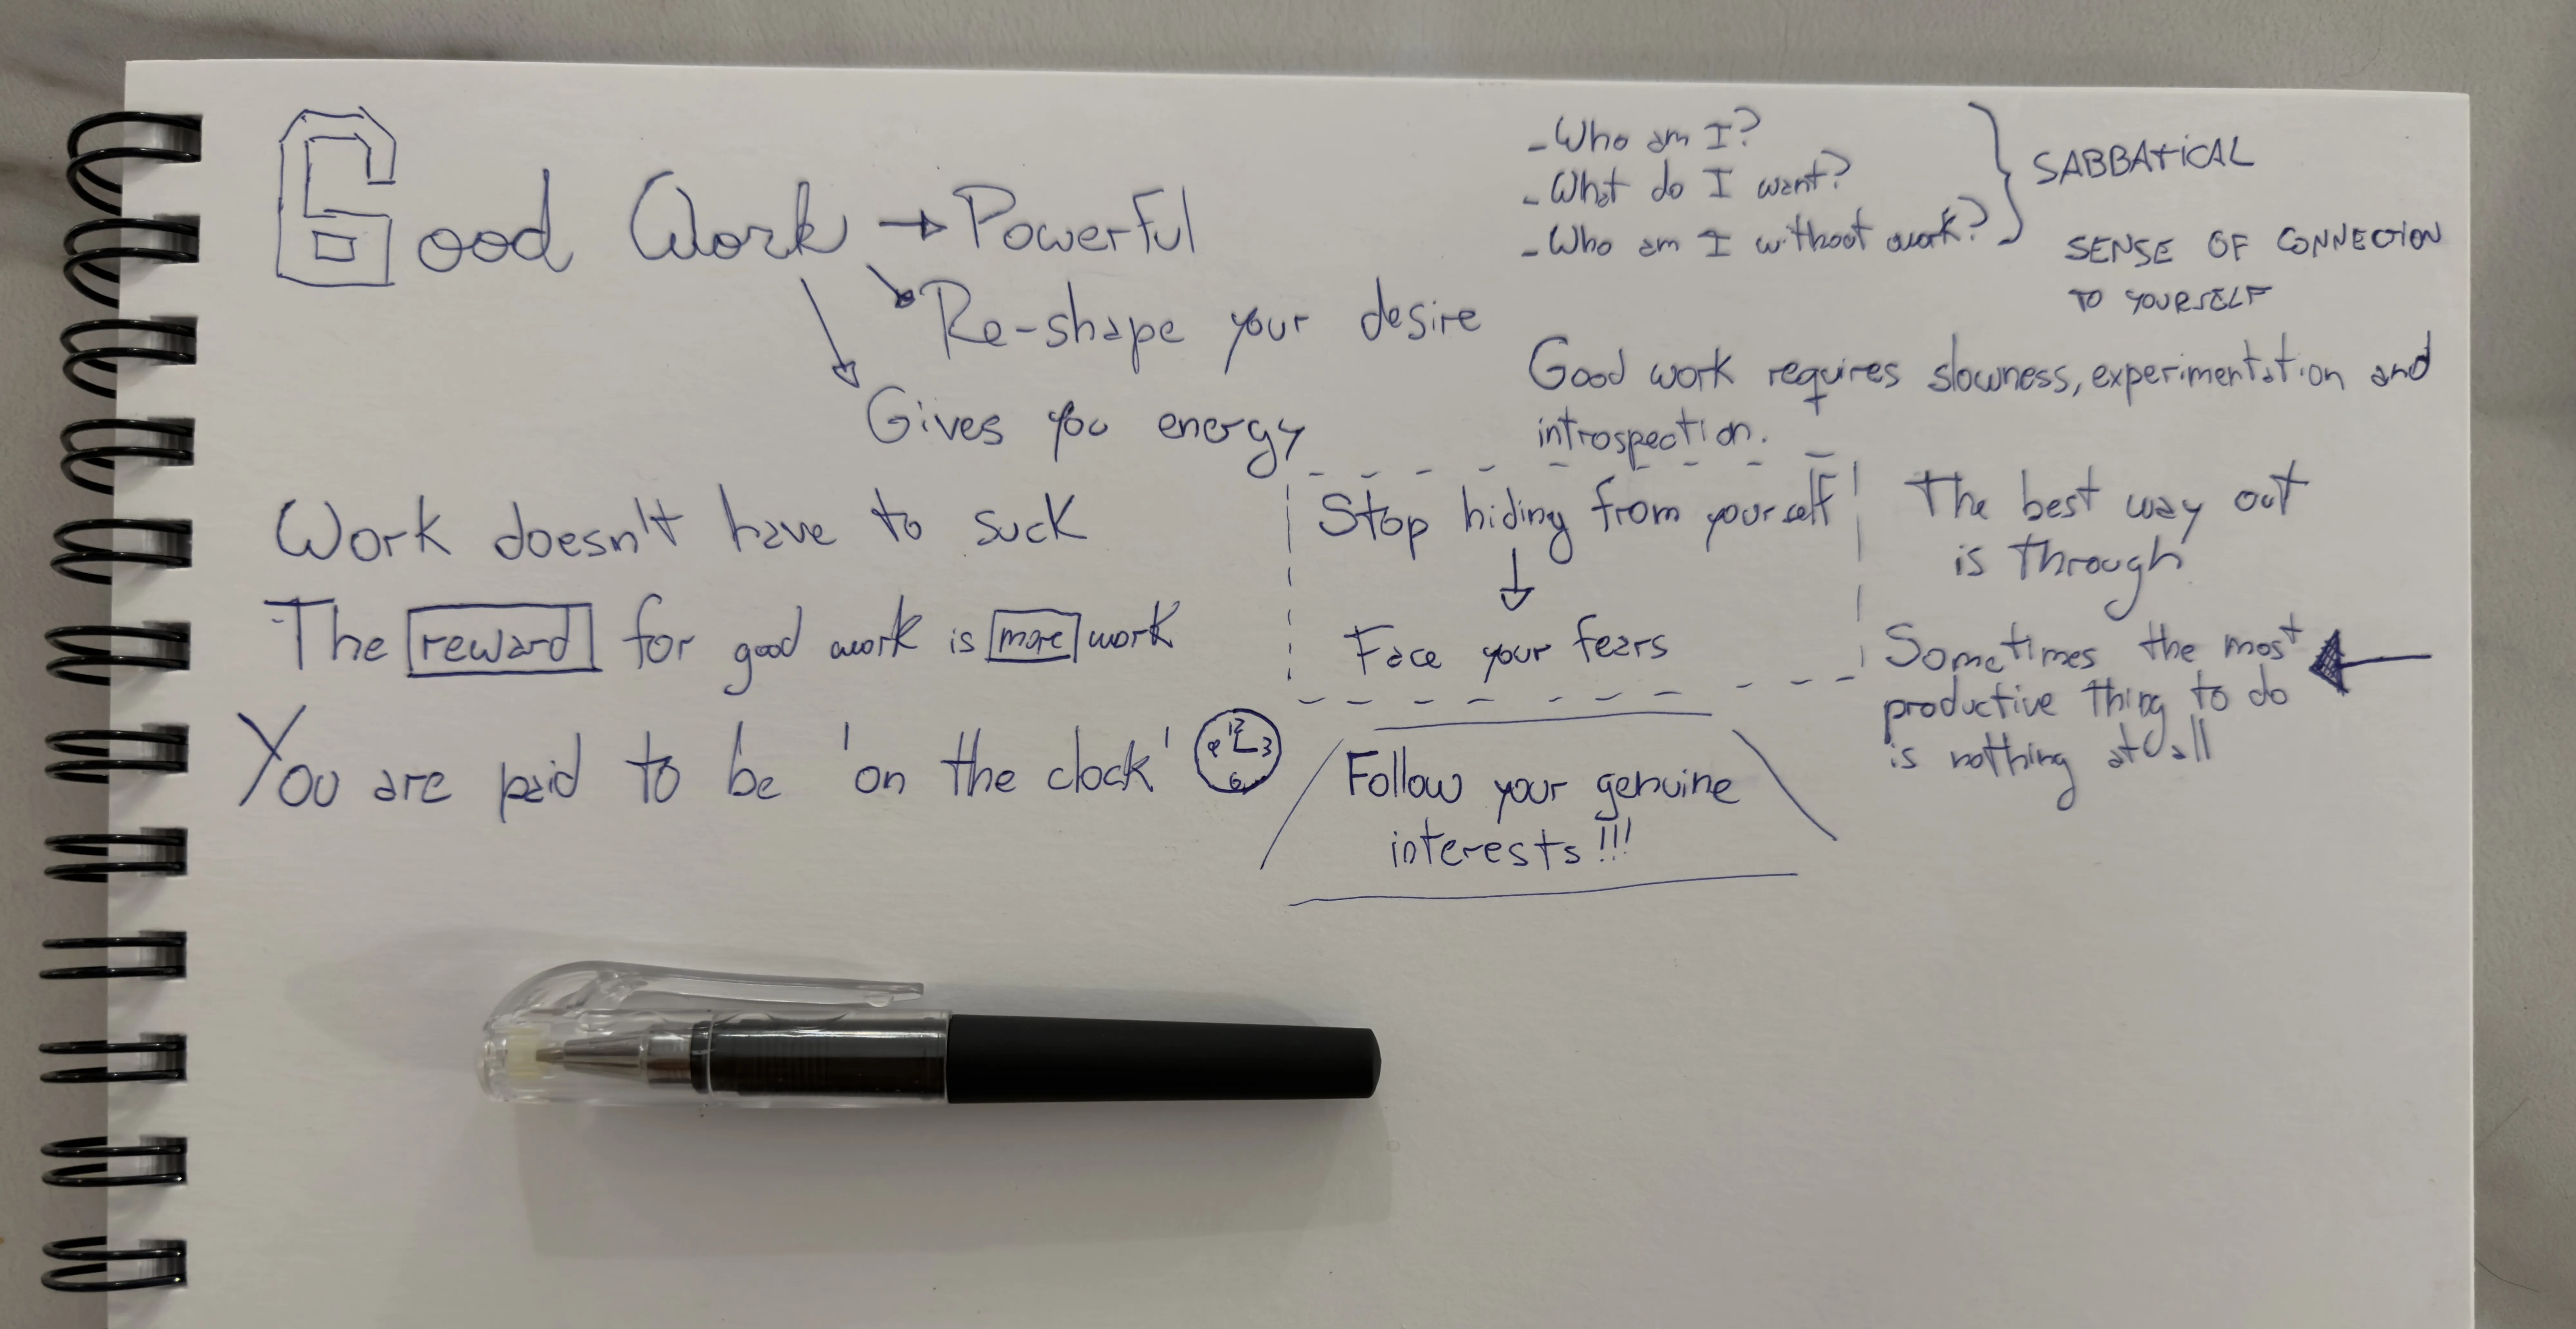 Good Work → Powerful
Re-shape your desire
Gives you energy
Work doesn't have to suck
The reward for good work is more work
You are paid to be 'on the clock'
12
9 3
6
- Who am I?
- What do I want?
- Who am I without work?
SABBATICAL
SENSE OF CONNECTION
TO YOURSELF
Good work requires slowness, experimentation and
introspection.
Stop hiding from yourself
Face your fears
Follow your genuine
interests!!!
The best way out
is through
Sometimes the most
productive thing to do
is nothing at all